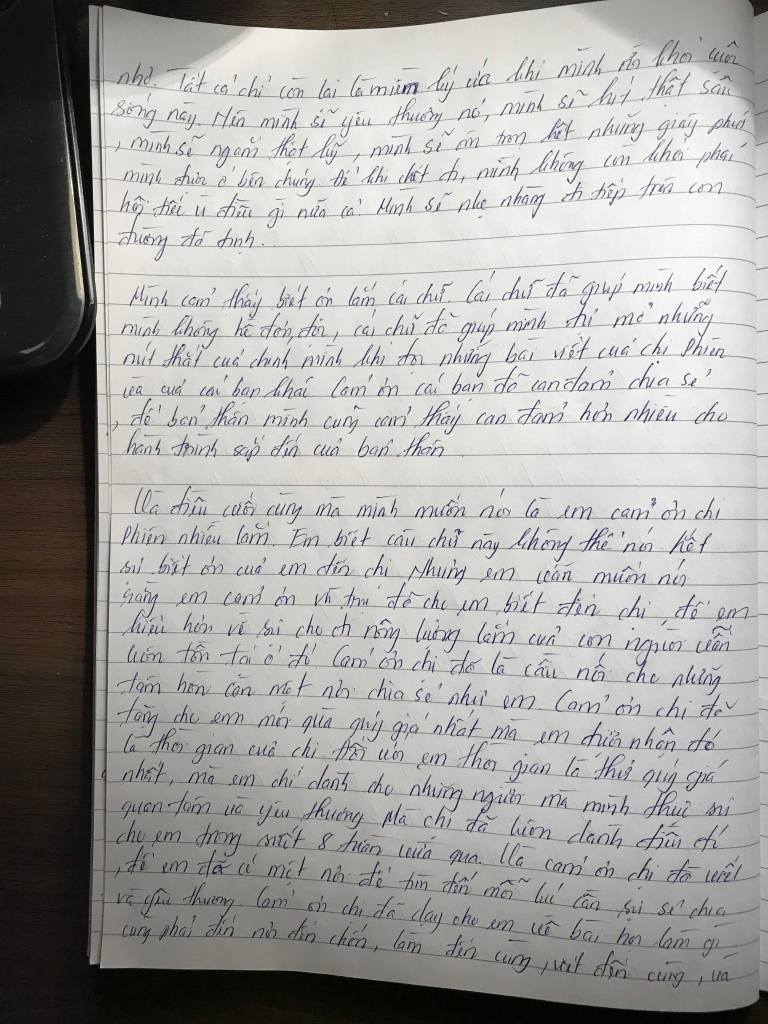 nhỏ. Tất cả chỉ còn lại là miền ký ức khi mình rời khỏi cuộc
sống này. Nên mình sẽ yêu thương nó, mình sẽ hít thật sâu
, mình sẽ ngắm thật kỹ, mình sẽ ôn trọn hết những giây phút
mình được ở bên chúng để khi chết đi, mình không còn khỏi phải
hối tiếc vì điều gì nữa cả. Mình sẽ nhẹ nhàng đi tiếp trên con
đường đã định.
Mình cảm thấy biết ơn lắm cái chữ. Cái chữ đã giúp mình biết
mình không hề đơn độc, cái chữ đã giúp mình tự mở những
nút thắt của chính mình khi đọc những bài viết của chị Phiên
và của các bạn khác. Cảm ơn các bạn đã can đảm chia sẻ
, để bản thân mình cũng cảm thấy can đảm hơn nhiều cho
hành trình sắp đến của bản thân
Và điều cuối cùng mà mình muốn nói là em cảm ơn chị
Phiên nhiều lắm. Em biết câu chữ này không thể nói hết
sự biết ơn của em đến chị. Nhưng em vẫn muốn nói
rằng em cảm ơn vũ trụ đã cho em biết đến chị, để em
hiểu hơn về sự cho đi rộng lượng lắm của con người vẫn
luôn tồn tại ở đó. Cảm ơn chị đã là cầu nối cho những
tâm hồn cần một nơi chia sẻ như em. Cảm ơn chị đã
tặng cho em món quà quý giá nhất mà em được nhận đó
là thời gian của chị. Đối với em thời gian là thứ quý giá
nhất, mà em chỉ dành cho những người mà mình thực sự
quan tâm và yêu thương. Mà chị đã luôn dành điều đó
cho em trong suốt 8 tuần vừa qua. Và cảm ơn chị đã viết
, để em đã có một nơi để tìm đến mỗi lúc cần sự sẻ chia
và yêu thương. Cảm ơn chị đã dạy cho em về bài học làm gì
cũng phải đến nơi đến chốn, làm đến cùng, viết đến cùng, và